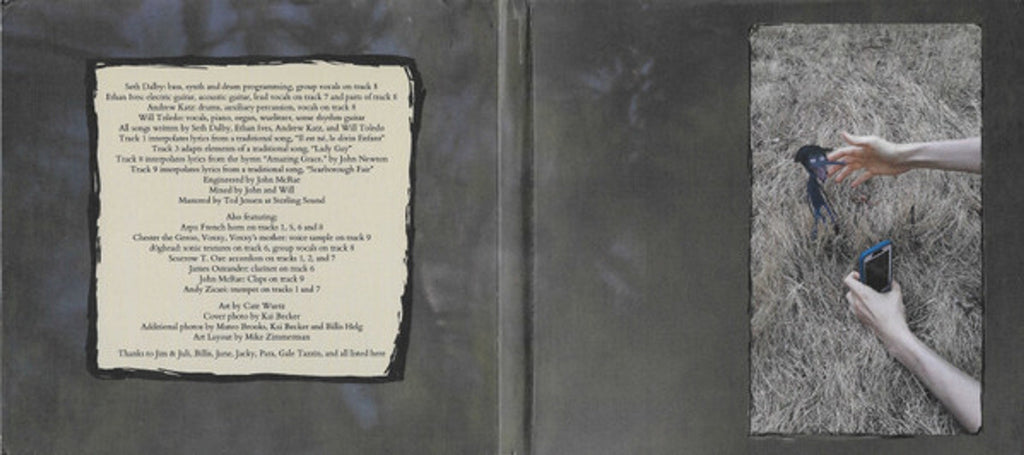 Seth Dalby: bass, synth and drum programming, group vocals on track 8
Ethan Ives: electric guitar, acoustic guitar, lead vocals on track 7 and parts of track 8
Andrew Katz: drums, auxiliary percussion, vocals on track 8
Will Toledo: vocals, piano, organ, wurlitzer, some rhythm guitar
All songs written by Seth Dalby, Ethan Ives, Andrew Katz, and Will Toledo
Track 1 interpolates lyrics from a traditional song, "Il est né, le divin Enfant"
Track 3 adapts elements of a traditional song, "Lady Gay"
Track 8 interpolates lyrics from the hymn "Amazing Grace," by John Newton
Track 9 interpolates lyrics from a traditional song, "Scarborough Fair"
Engineered by John McRae
Mixed by John and Will
Mastered by Ted Jensen at Sterling Sound
Also featuring:
Arps: French horn on tracks 1, 5, 6 and 8
Chester the Genso, Voxxy, Voxxy's mother: voice sample on track 9
døghead: sonic textures on track 6, group vocals on track 8
Scarrow T. Oxe: accordion on tracks 1, 2, and 7
James Ostrander: clarinet on track 6
John McRae: Claps on track 9
Andy Zicari: trumpet on tracks 1 and 7
Art by Cate Wurtz
Cover photo by Kai Becker
Additional photos by Mateo Brooks, Kai Becker and Billis Helg
Art Layout by Mike Zimmerman
Thanks to Jim & Juli, Billis, June, Jacky, Patx, Gale Tanzin, and all listed here